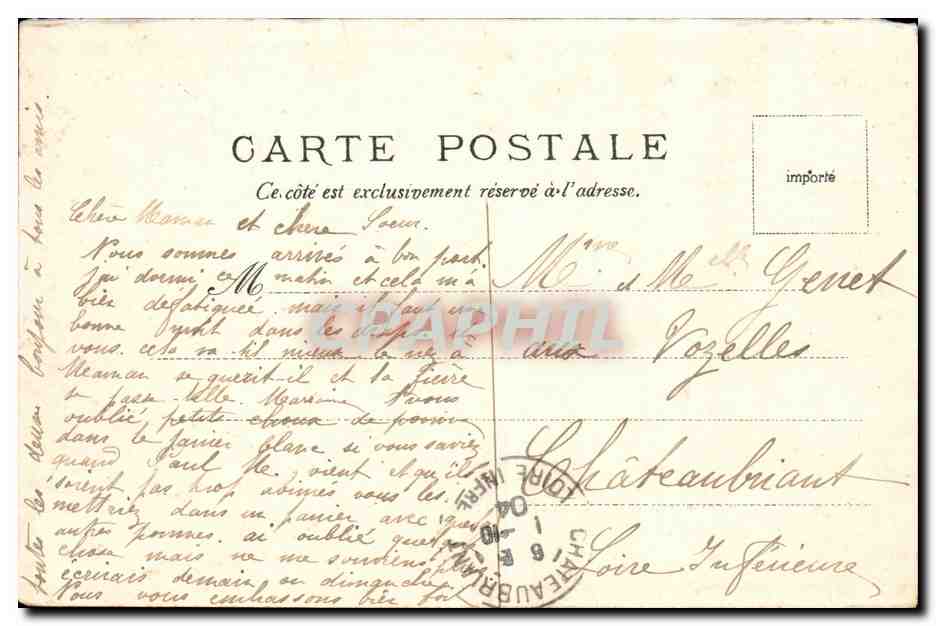 CARTE POSTALE
Ce côté est exclusivement réservé à l'adresse.
importé
Chère Maman et chère Soeur.
Nous sommes arrivés à bon port
j'ai dormi ce matin et cela m'a
bien defatiguée mais il faut une
bonne nuit dans les draps et
vous. cela va t-il mieux le nez à
Maman se guerit-il et la fièvre
se passe-t-elle. Marraine
oublié petits choux de pomme
dans le panier blanc si vous saviez
quand Paul vient et qu'ils
soient pas trop abimés vous les
mettriez dans un panier avec
autres pommes. ai oublié quelque
chose mais ne me souviens
écrirais demain ou dimanche
Nous vous embrassons bien fort
toutes les deux bonjour à tous les amis.
Mme & Melle Genet
aux Vozelles
Châteaubriant
Loire Inférieure
CHATEAUBRIANT
LOIRE INFRE
6 E
1 -10
04
CPAPHIL